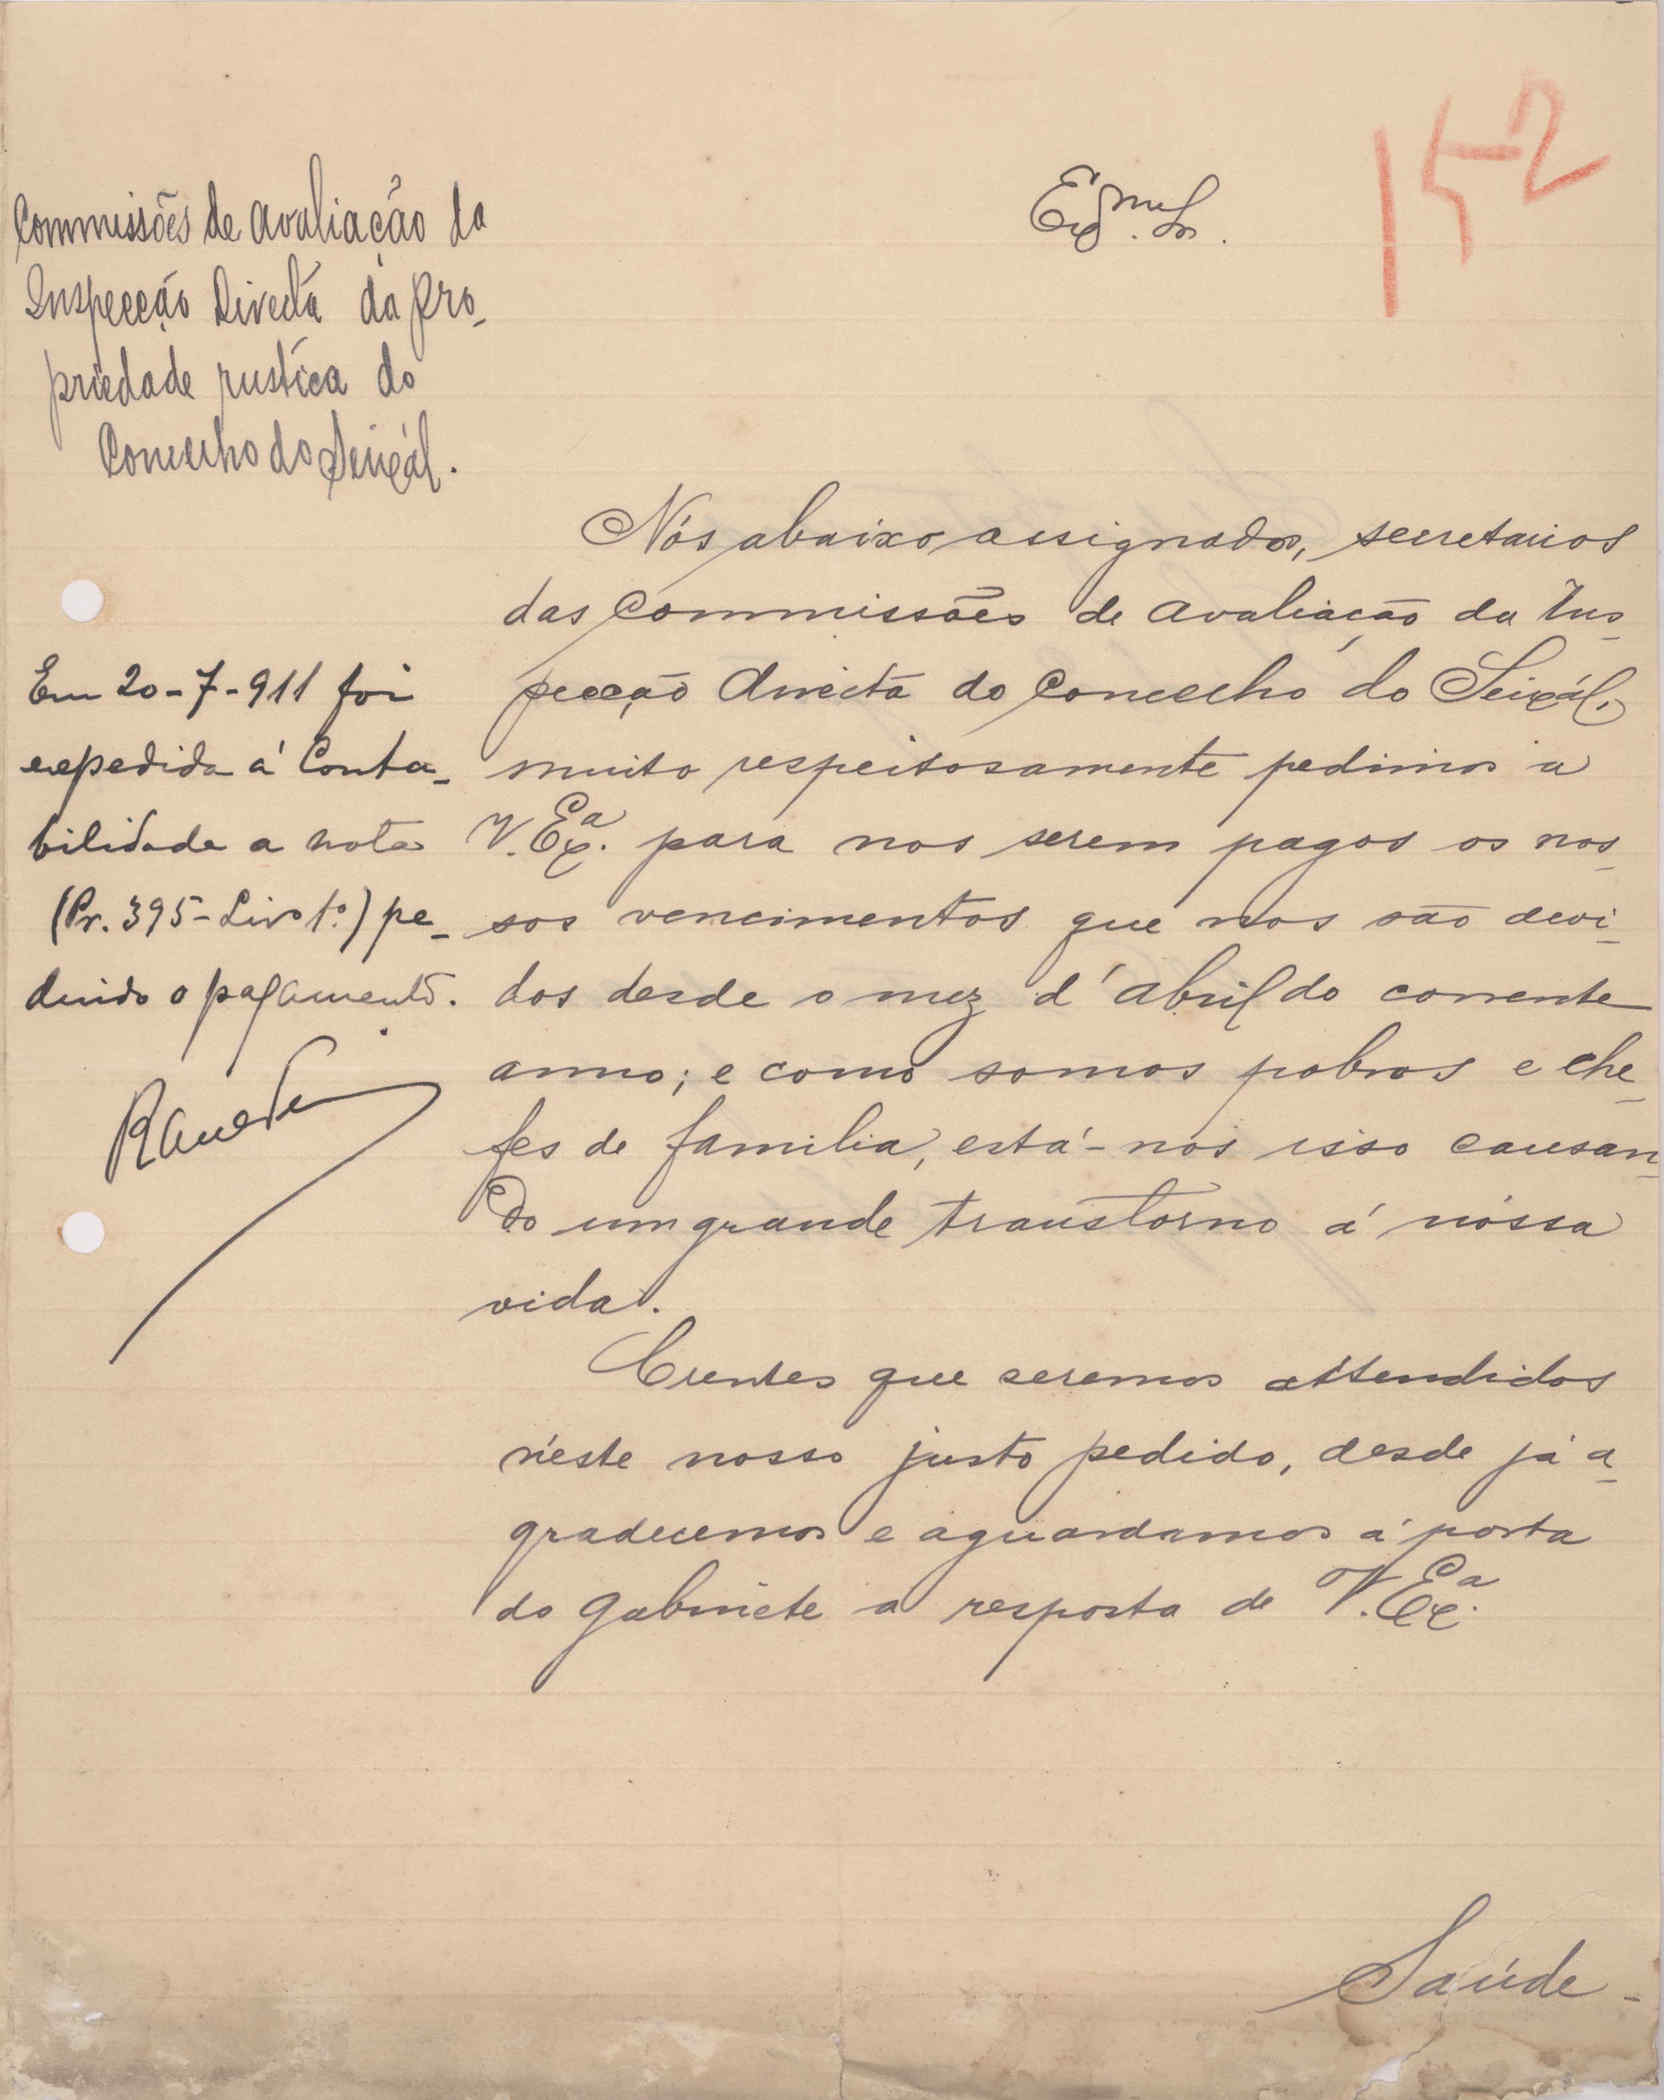 152
Commissões de avaliação da
Inspecção Directa da pro-
priedade rustica do
Concelho do Seixál.
Exmo. Sr.
Nós abaixo assignados, secretarios
das Commissões de avaliação da Ins-
pecção directa do Concelho do Seixál,
muito respeitosamente pedimos a
V. Exa. para nos serem pagos os nos-
sos vencimentos que nos são devi-
dos desde o mez d'abril do corrente
anno; e como somos pobres e che-
fes de familia, está-nos isso causan-
do um grande transtorno á nossa
vida.
Crentes que seremos attendidos
n'este nosso justo pedido, desde já a-
gradecemos e aguardamos á porta
do gabinete a resposta de V. Exa.
Saúde-
Em 20-7-911 foi
expedida á Conta-
bilidade a nota
(Pr. 395-Livo 1.º) pe-
dindo o pagamento.